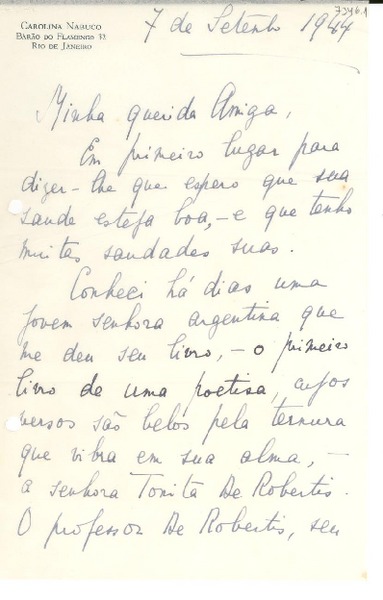 CAROLINA NABUCO
BARÃO DO FLAMENGO 32
RIO DE JANEIRO
7 de Setenbro 1944
Minha querida Amiga,
Em primeiro lugar para
dizer-lhe que espero que sua
saude esteja boa,- e que tenho
muitas saudades suas.
Conheci há dias uma
jovem senhora argentina que
me deu seu livro,- o primeiro
livro de uma poetisa, cujos
versos são belos pela ternura
que vibra em sua alma,-
a senhora Tonita De Robertis.
O professor De Robertis, seu